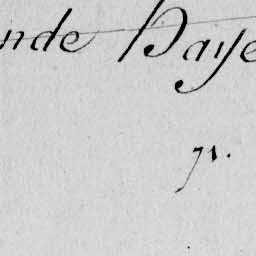 nde Haye
71.